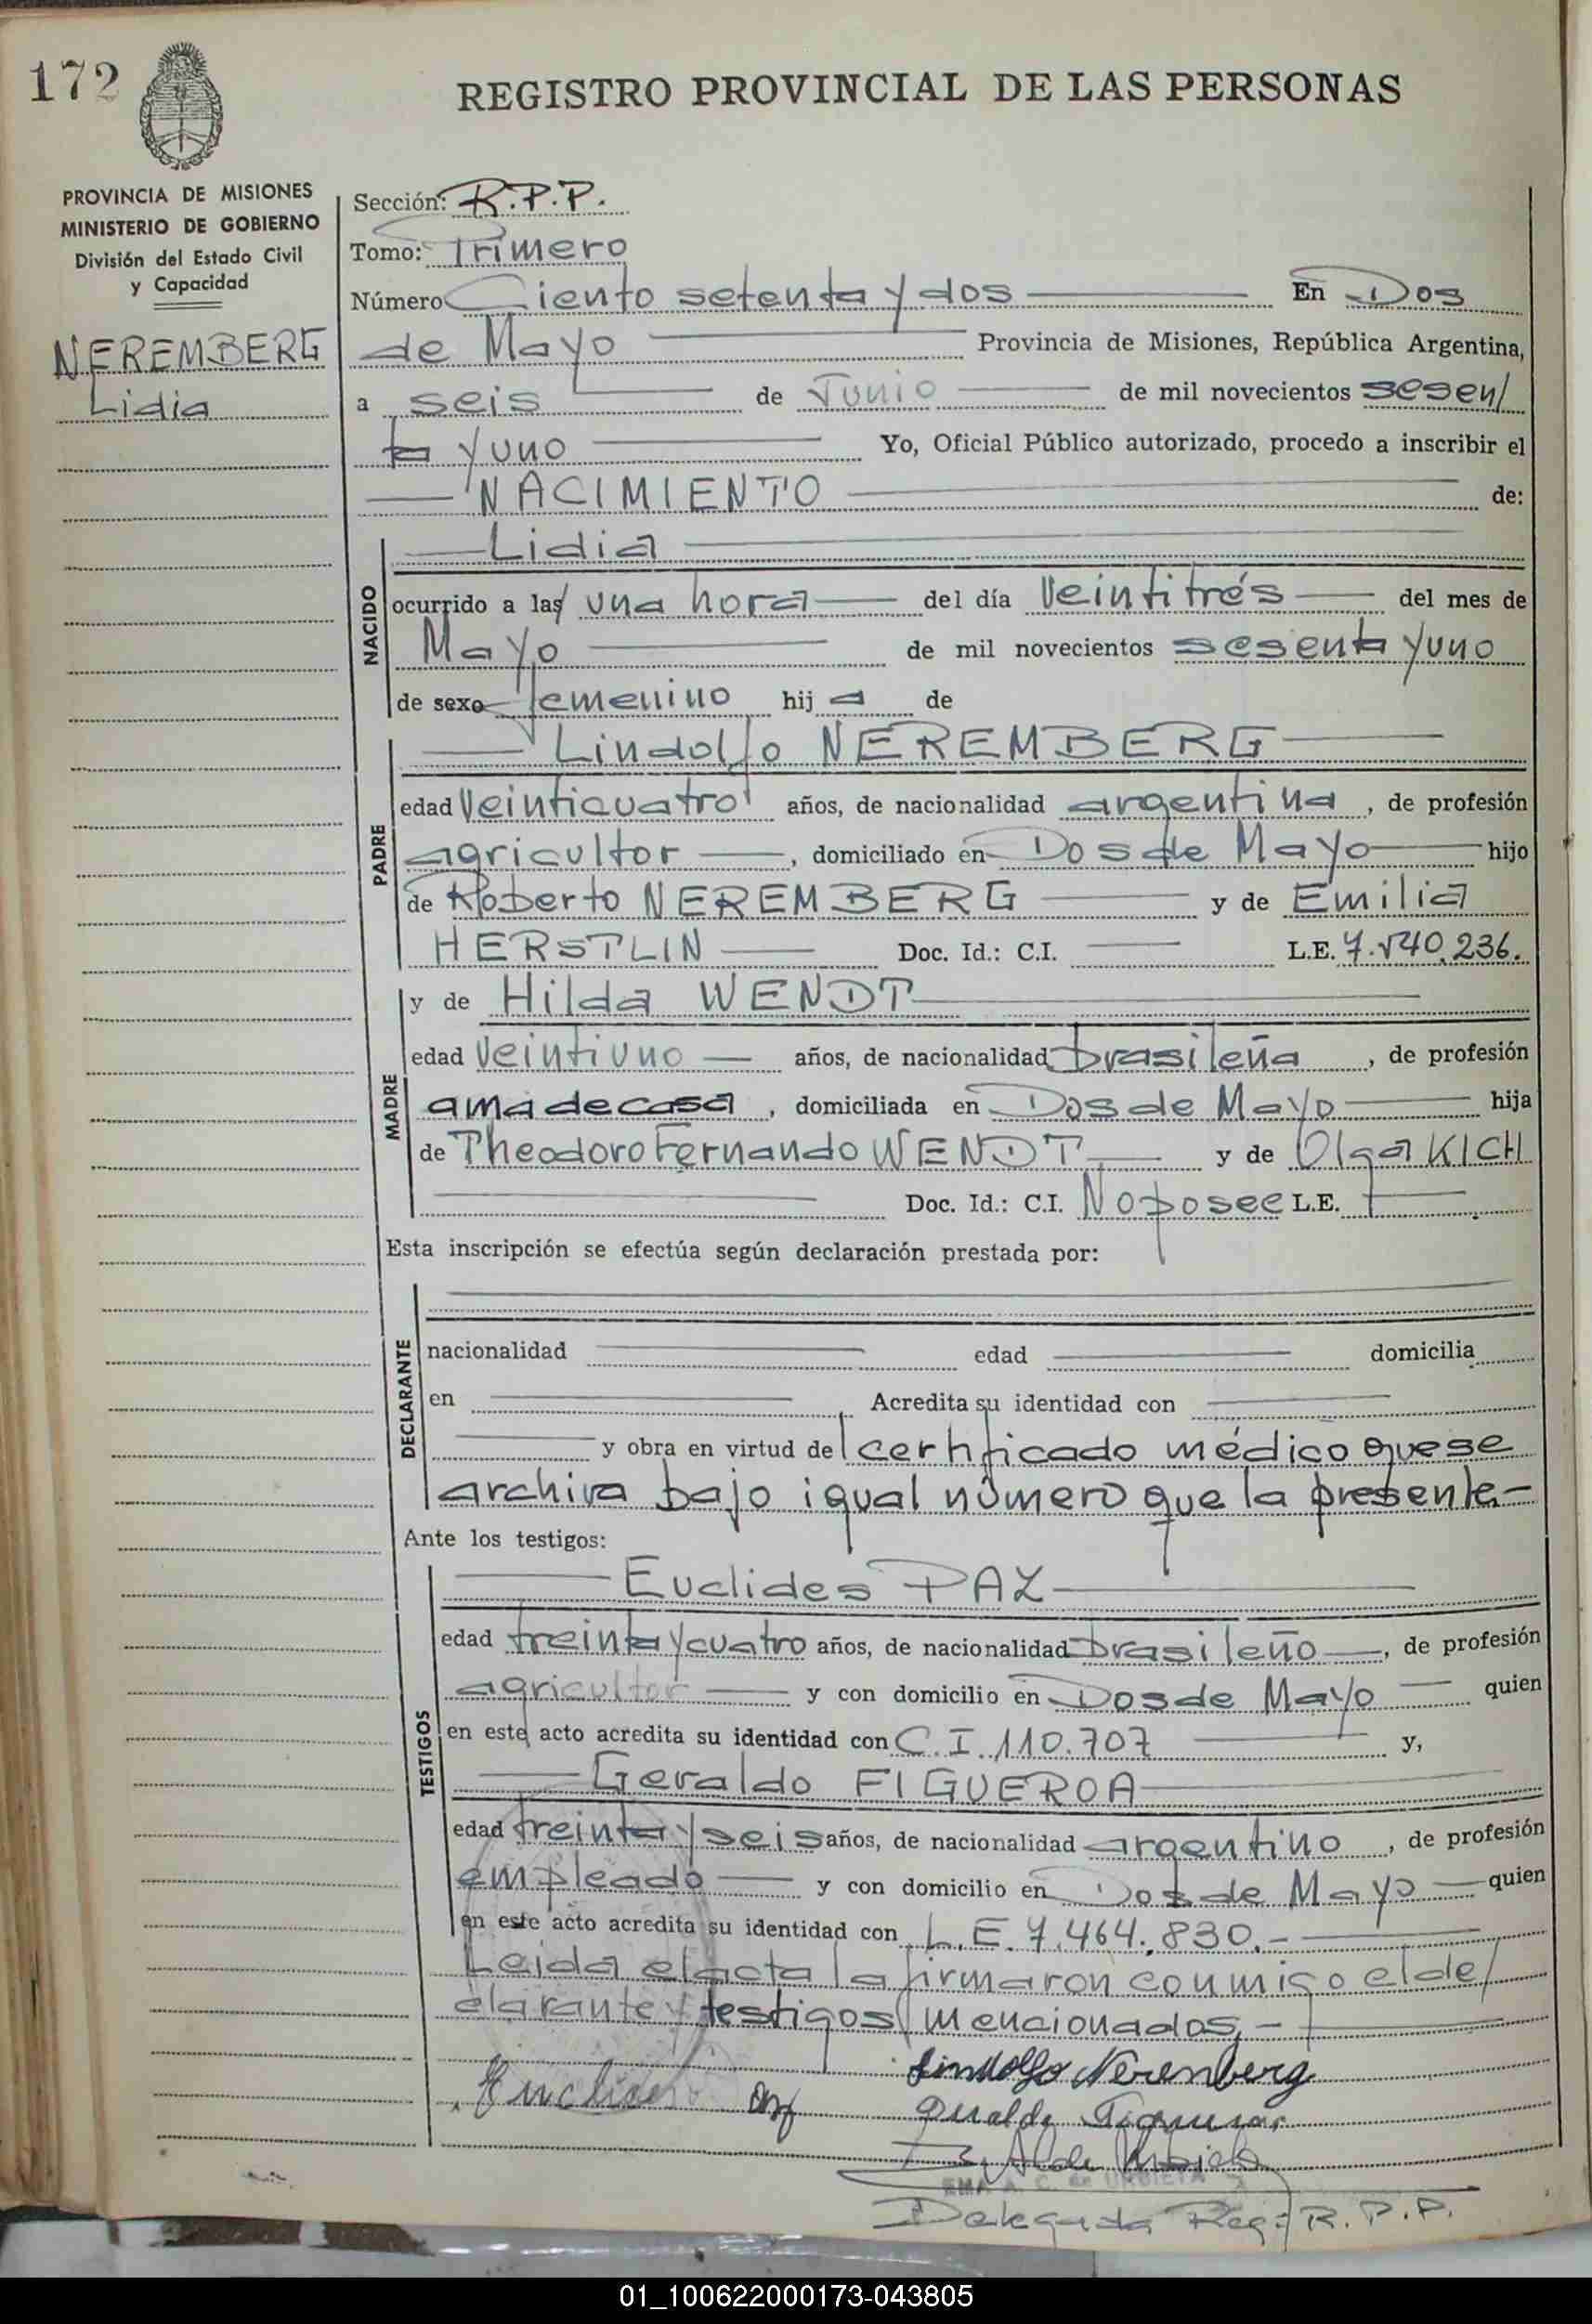 172
REGISTRO PROVINCIAL DE LAS PERSONAS
PROVINCIA DE MISIONES
MINISTERIO DE GOBIERNO
División del Estado Civil
y Capacidad
NEREMBERG
Lidia
Sección: R.P.P.
Tomo: Primero
Número Ciento setenta y dos En Dos
de Mayo Provincia de Misiones, República Argentina,
a seis de Junio de mil novecientos sesen/
ta y uno Yo, Oficial Público autorizado, procedo a inscribir el
NACIMIENTO de:
NACIDO
Lidia
ocurrido a las/ una hora del día veintitrés del mes de
Mayo de mil novecientos sesenta y uno
de sexo femenino hij a de
PADRE
Lindolfo NEREMBERG
edad veinticuatro años, de nacionalidad argentina, de profesión
agricultor, domiciliado en Dos de Mayo hijo
de Roberto NEREMBERG y de Emilia
HERSTLIN Doc. Id.: C.I. L.E. 7.540.236.
MADRE
y de Hilda WENDT
edad veintiuno años, de nacionalidad brasileña, de profesión
ama de casa, domiciliada en Dos de Mayo hija
de Theodoro Fernando WENDT y de Olga KICH
Doc. Id.: C.I. No posee L.E.
Esta inscripción se efectúa según declaración prestada por:
DECLARANTE
nacionalidad edad domicilia
en Acredita su identidad con
y obra en virtud del certificado médico que se
archiva bajo igual número que la presente.-
Ante los testigos:
TESTIGOS
Euclides PAZ
edad treinta y cuatro años, de nacionalidad brasileño, de profesión
agricultor y con domicilio en Dos de Mayo quien
en este acto acredita su identidad con C.I. 110.707 y,
Geraldo FIGUEROA
edad treinta y seis años, de nacionalidad argentino, de profesión
empleado y con domicilio en Dos de Mayo quien
en este acto acredita su identidad con L.E. 7.464.830.-
Leida el acta la firmaron conmigo el de/
clarante y testigos mencionados,-
Lindolfo Nerenberg
Euclides
EMA A. C. de URBIETA
Delegada Reg. R.P.P.
01_100622000173-043805